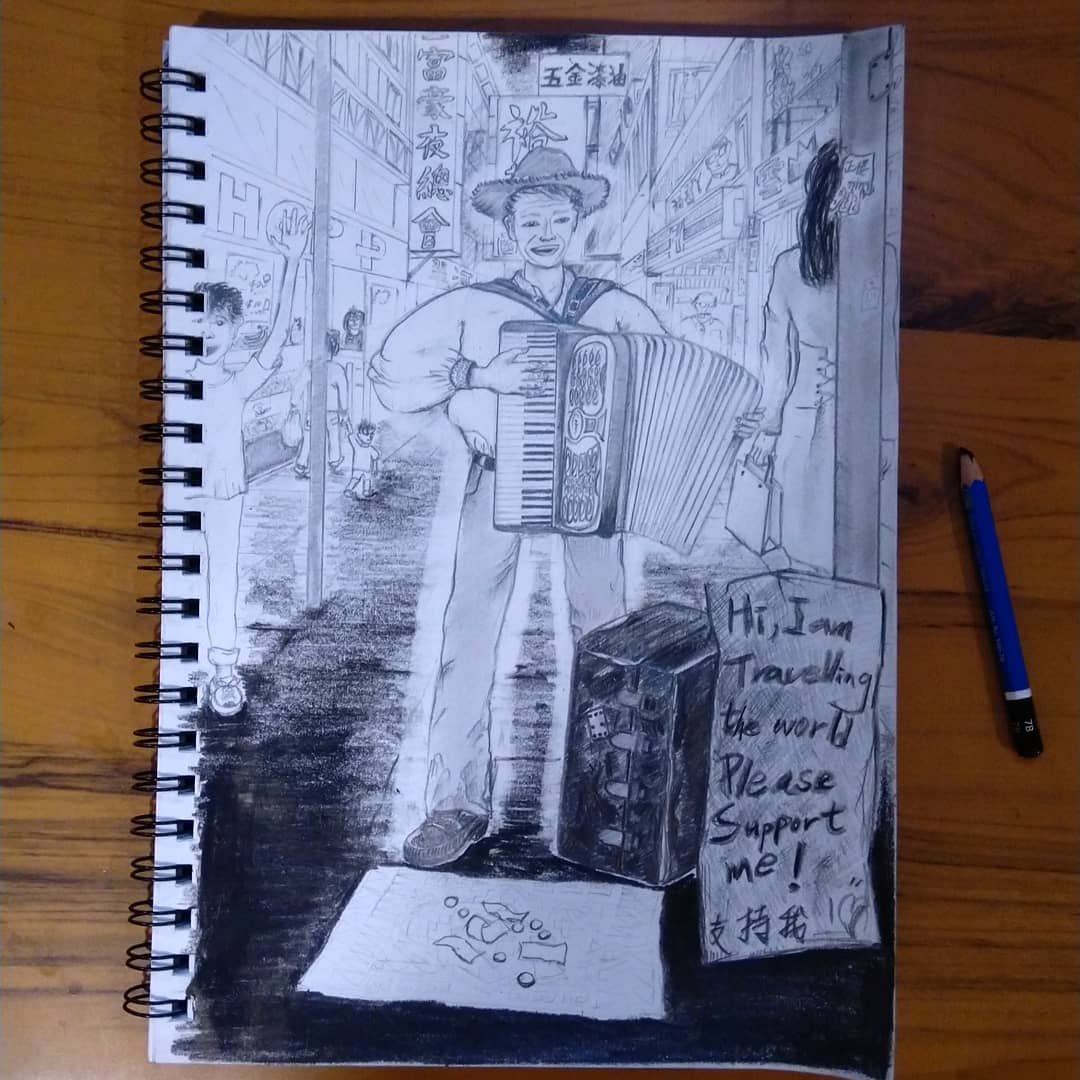 富豪夜總會
五金漆油
裕
Hi, I am
Travelling
the world
Please
Support
me!
支持我
7B